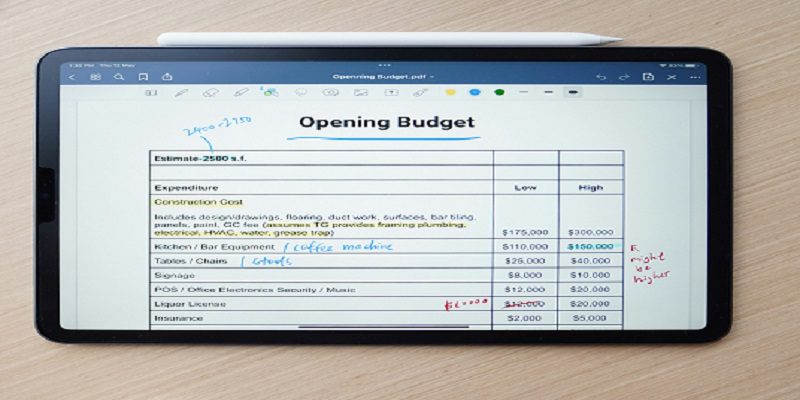 Thu 12 May
Openning Budget.pdf
Opening Budget
2400-2750
Estimate-2500 s.f.
Expenditure Low High
Construction Cost
Includes design/drawings, flooring, duct work, surfaces, bar tiling,
panels, paint, GC fee (assumes TG provides framing plumbing,
electrical, HVAC, water, grease trap) $175,000 $300,000
Kitchen / Bar Equipment / coffee machine $110,000 $150,000
Tables / Chairs / stools $25,000 $40,000
Signage $8,000 $10,000
POS / Office Electronics Security / Music $12,000 $20,000
Liquer License $12,000 $20,000
Insurance $2,000 $5,000
might
be
higher